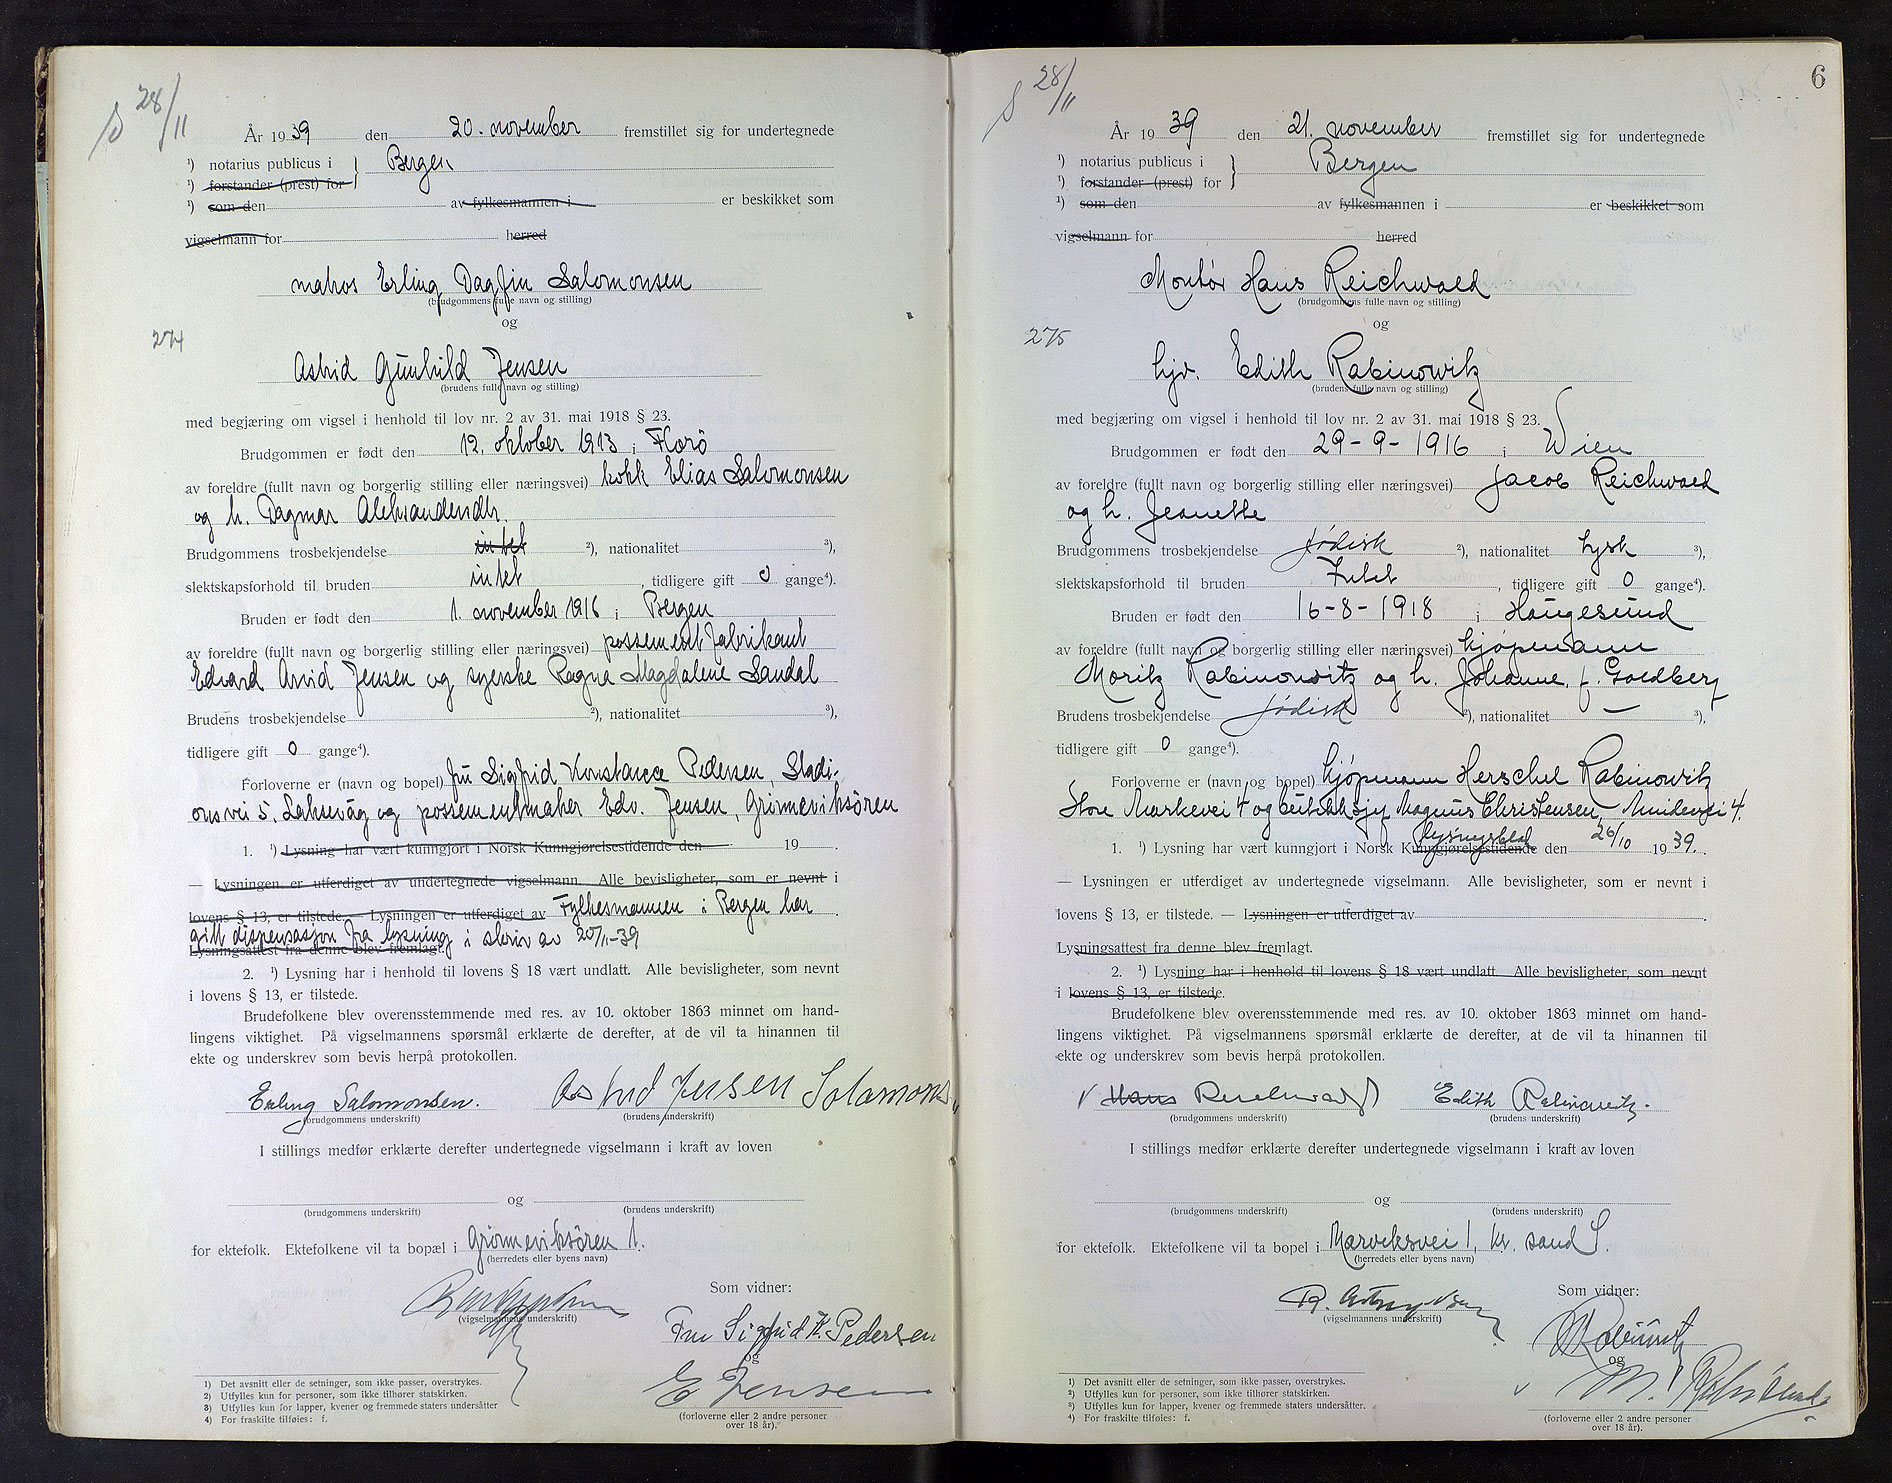 28/11
År 1939 den 20. november fremstillet sig for undertegnede
¹) notarius publicus i } Bergen
¹) forstander (prest) for
¹) som den av fylkesmannen i er beskikket som
vigselmann for herred
matros Erling Dagfin Salomonsen
(brudgommens fulle navn og stilling)
og
274
Astrid Gunhild Jensen
(brudens fulle navn og stilling)
med begjæring om vigsel i henhold til lov nr. 2 av 31. mai 1918 § 23.
Brudgommen er født den 12. oktober 1913 i Florö
av foreldre (fullt navn og borgerlig stilling eller næringsvei) kokk Elias Salomonsen
og h. Dagmar Aleksandersdtr.
Brudgommens trosbekjendelse intet ²), nationalitet ³),
slektskapsforhold til bruden intet, tidligere gift 0 gange⁴).
Bruden er født den 1. november 1916 i Bergen
av foreldre (fullt navn og borgerlig stilling eller næringsvei) possementfabrikant
Edvard Arvid Jensen og syerske Ragna Magdalene Sandal
Brudens trosbekjendelse ²), nationalitet ³),
tidligere gift 0 gange⁴).
Forloverne er (navn og bopel) fru Sigfrid Konstance Pedersen, Stadi-
onsvei 5. Laksevåg og possementmaker Edv. Jensen, Grönneviksören
1. ¹) Lysning har vært kunngjort i Norsk Kunngjørelsestidende den 19 .
— Lysningen er utferdiget av undertegnede vigselmann. Alle bevisligheter, som er nevnt i
lovens § 13, er tilstede. — Lysningen er utferdiget av Fylkesmannen i Bergen har
gitt dispensasjon fra lysning i skriv av 20/11-39
Lysningsattest fra denne blev fremlagt.
2. ¹) Lysning har i henhold til lovens § 18 vært undlatt. Alle bevisligheter, som nevnt
i lovens § 13, er tilstede.
Brudefolkene blev overensstemmende med res. av 10. oktober 1863 minnet om hand-
lingens viktighet. På vigselmannens spørsmål erklærte de derefter, at de vil ta hinannen til
ekte og underskrev som bevis herpå protokollen.
Erling Salomonsen. Astrid Jensen Salomons
(brudgommens underskrift) (brudens underskrift)
I stillings medfør erklærte derefter undertegnede vigselmann i kraft av loven
og
(brudgommens underskrift) (brudens underskrift)
for ektefolk. Ektefolkene vil ta bopæl i Grönneviksören 1.
(herredets eller byens navn)
Som vidner:
(vigselmannens underskrift)
Fru Sigfrid K. Pedersen
og
E Jensen
(forloverne eller 2 andre personer
over 18 år).
1) Det avsnitt eller de setninger, som ikke passer, overstrykes.
2) Utfylles kun for personer, som ikke tilhører statskirken.
3) Utfylles kun for lapper, kvener og fremmede staters undersåtter
4) For fraskilte tilføies: f.
28/11
6
År 1939 den 21. november fremstillet sig for undertegnede
¹) notarius publicus i } Bergen
¹) forstander (prest) for
¹) som den av fylkesmannen i er beskikket som
vigselmann for herred
Montör Hans Reichwald
(brudgommens fulle navn og stilling)
og
275
hjv. Edith Rabinowitz
(brudens fulle navn og stilling)
med begjæring om vigsel i henhold til lov nr. 2 av 31. mai 1918 § 23.
Brudgommen er født den 29-9-1916 i Wien
av foreldre (fullt navn og borgerlig stilling eller næringsvei) Jacob Reichwald
og h. Jeanette
Brudgommens trosbekjendelse jødisk ²), nationalitet tysk ³),
slektskapsforhold til bruden Intet, tidligere gift 0 gange⁴).
Bruden er født den 16-8-1918 i Haugesund
av foreldre (fullt navn og borgerlig stilling eller næringsvei) kjøpmann
Moritz Rabinowitz og h. Johanne, f. Goldberg
Brudens trosbekjendelse jødisk ²), nationalitet — ³),
tidligere gift 0 gange⁴).
Forloverne er (navn og bopel) kjøpmann Herschel Rabinowitz
Store Markevei 4 og butikksjef Magnus Christensen, Mindevei 4.
1. ¹) Lysning har vært kunngjort i Norsk Kunngjørelsestidende lysningsblad den 26/10 1939.
— Lysningen er utferdiget av undertegnede vigselmann. Alle bevisligheter, som er nevnt i
lovens § 13, er tilstede. — Lysningen er utferdiget av .
Lysningsattest fra denne blev fremlagt.
2. ¹) Lysning har i henhold til lovens § 18 vært undlatt Alle bevisligheter, som nevnt
i lovens § 13, er tilstede.
Brudefolkene blev overensstemmende med res. av 10. oktober 1863 minnet om hand-
lingens viktighet. På vigselmannens spørsmål erklærte de derefter, at de vil ta hinannen til
ekte og underskrev som bevis herpå protokollen.
Hans Reichwald Edith Rabinowitz.
(brudgommens underskrift) (brudens underskrift)
I stillings medfør erklærte derefter undertegnede vigselmann i kraft av loven
og
(brudgommens underskrift) (brudens underskrift)
for ektefolk. Ektefolkene vil ta bopel i Marviksvei 1, kr. sand S.
(herredets eller byens navn)
Som vidner:
(vigselmannens underskrift)
Rabinowitz
og
(forloverne eller 2 andre personer
over 18 år).
¹) Det avsnitt eller de setninger, som ikke passer, overstrykes.
²) Utfylles kun for personer, som ikke tilhører statskirken.
³) Utfylles kun for lapper, kvener og fremmede staters undersåtter.
⁴) For fraskilte tilføies: f.